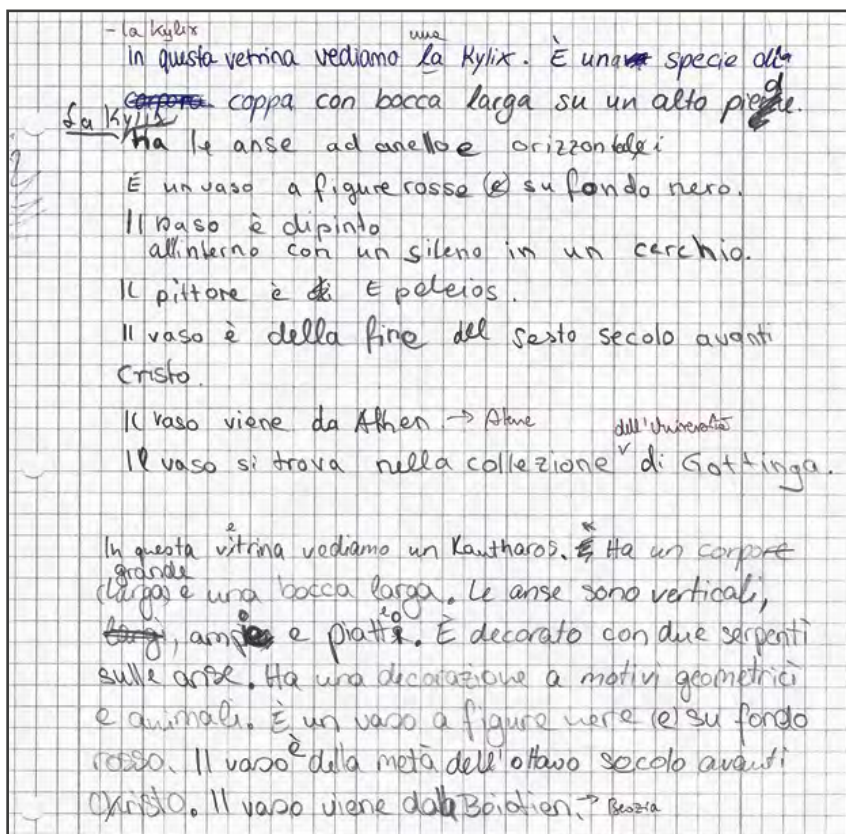 - la Kylix
In questa vetrina vediamo la una Kylix. È una specie di
corpora coppa con bocca larga su un alto piede.
La Kylix
Ha le anse ad anello e orizzontali
È un vaso a figure rosse (e) su fondo nero.
Il vaso è dipinto
all'interno con un sileno in un cerchio.
Il pittore è di Epeleios.
Il vaso è della fine del sesto secolo avanti
Cristo.
Il vaso viene da Athen. → Atene
Il vaso si trova nella collezione dell'Università di Gottinga.
In questa vitrina e vediamo un Kantharos. È Ha un corpore
(larga) grande e una bocca larga. Le anse sono verticali,
largi, ampie e piatte. È decorato con due serpenti
sulle anse. Ha una decorazione a motivi geometrici
e animali. È un vaso a figure nere (e) su fondo
rosso. Il vaso è della metà dell'ottavo secolo avanti
Christo. Il vaso viene dalla Boiotien. → Beozia